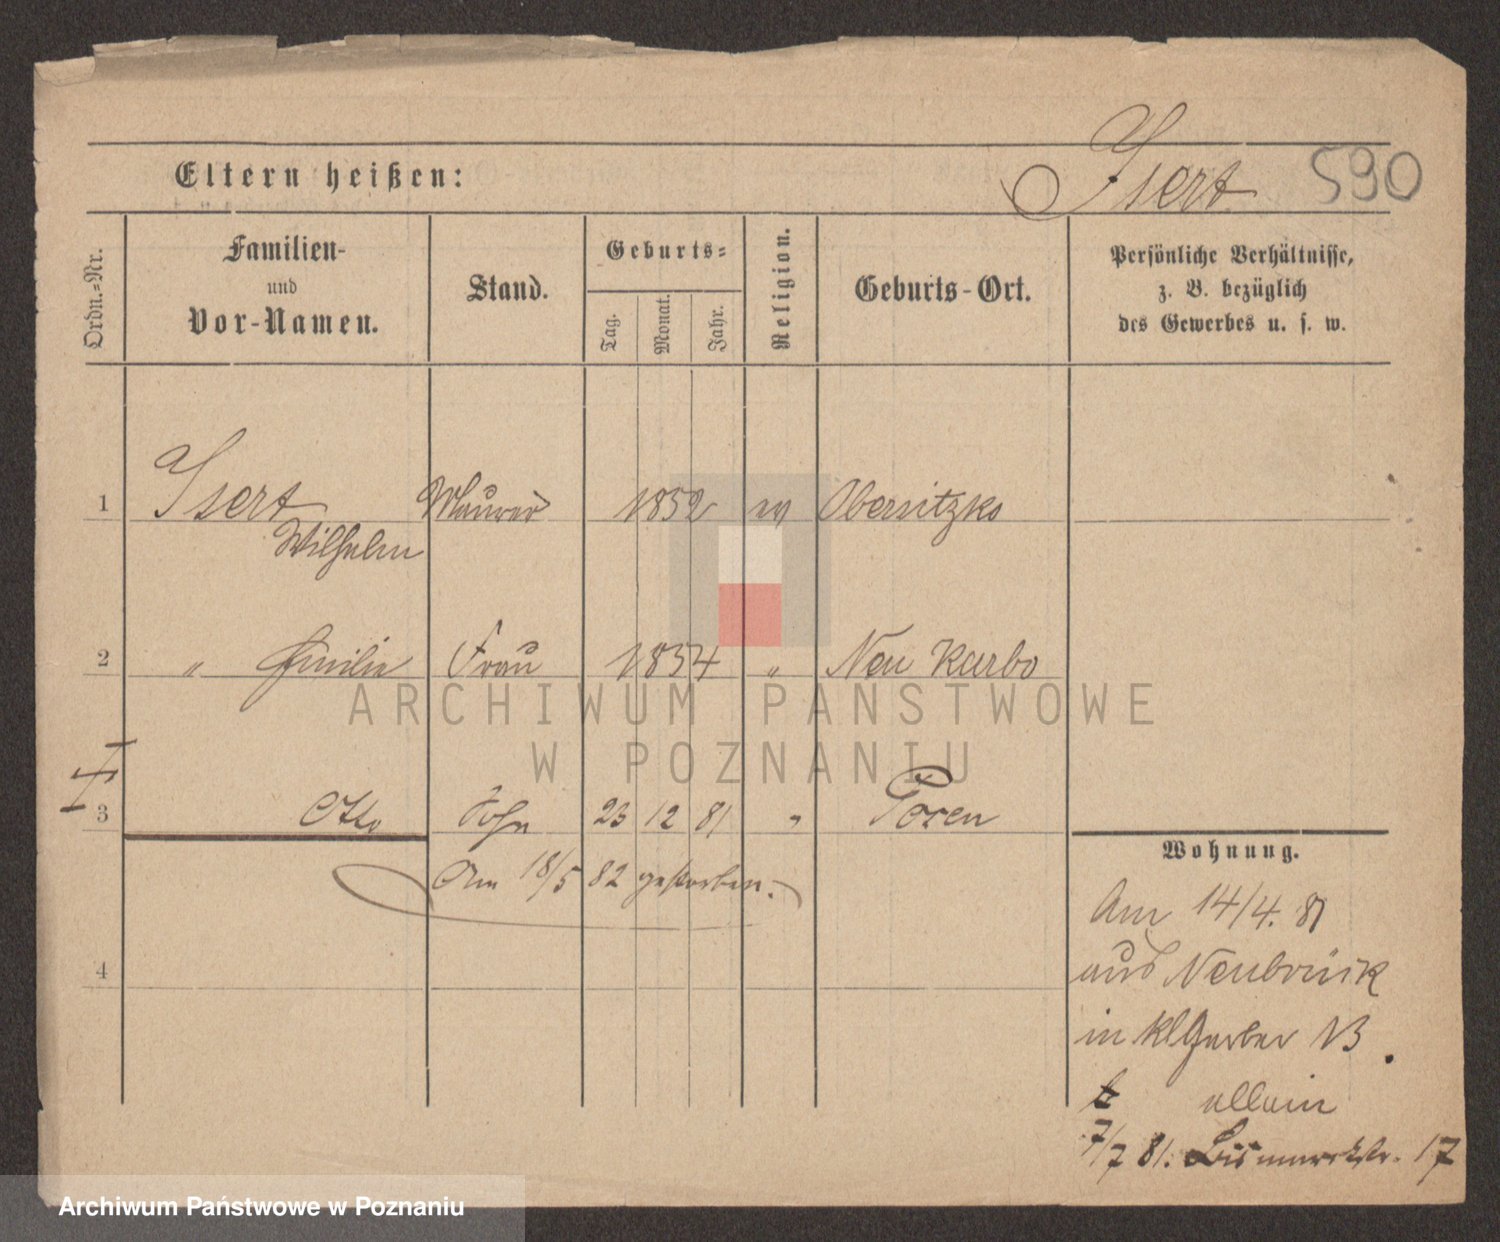 Eltern heißen:
Isert 590
Ordn.=Nr.
Familien-
und
Vor-Namen.
Stand.
Geburts=
Tag.
Monat.
Jahr.
Religion.
Geburts-Ort.
Persönliche Verhältnisse,
z. B. bezüglich
des Gewerbes u. s. w.
1 Isert Maurer 1852 ev Obersitzko
Wilhelm
2 " Emilie Frau 1854 " Neu Karbo
3 Otto Sohn 23 12 81 " Posen
Am 18/5 82 gestorben.
4
Wohnung.
Am 14/4. 81
aus Neubrück
in kl Gerber 13.
allein
7/7 81. Bismarckstr. 17
ARCHIWUM PAŃSTWOWE
W POZNANIU
Archiwum Państwowe w Poznaniu